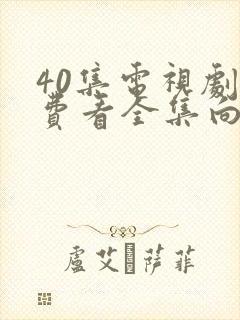 40集電視劇
費看全集向
盧艾·萨菲